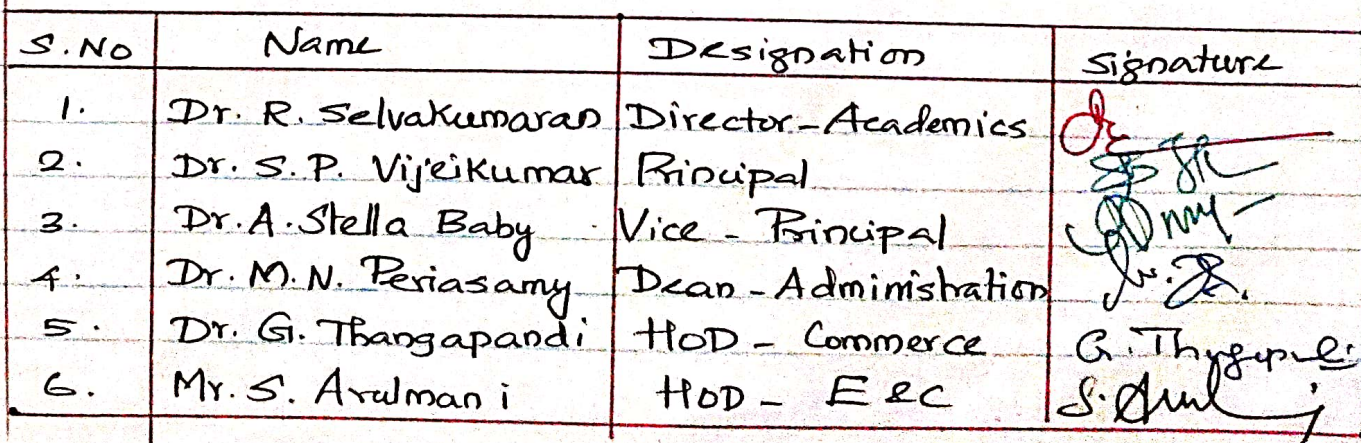 S.No Name Designation Signature
1. Dr. R. Selvakumaran Director-Academics
2. Dr. S.P. VijeiKumar Principal
3. Dr. A. Stella Baby Vice - Principal
4. Dr. M.N. Periasamy Dean - Administration
5. Dr. G. Thangapandi HOD - Commerce G. Thngapndi
6. Mr. S. Arulmani HOD - E&C S. Arul